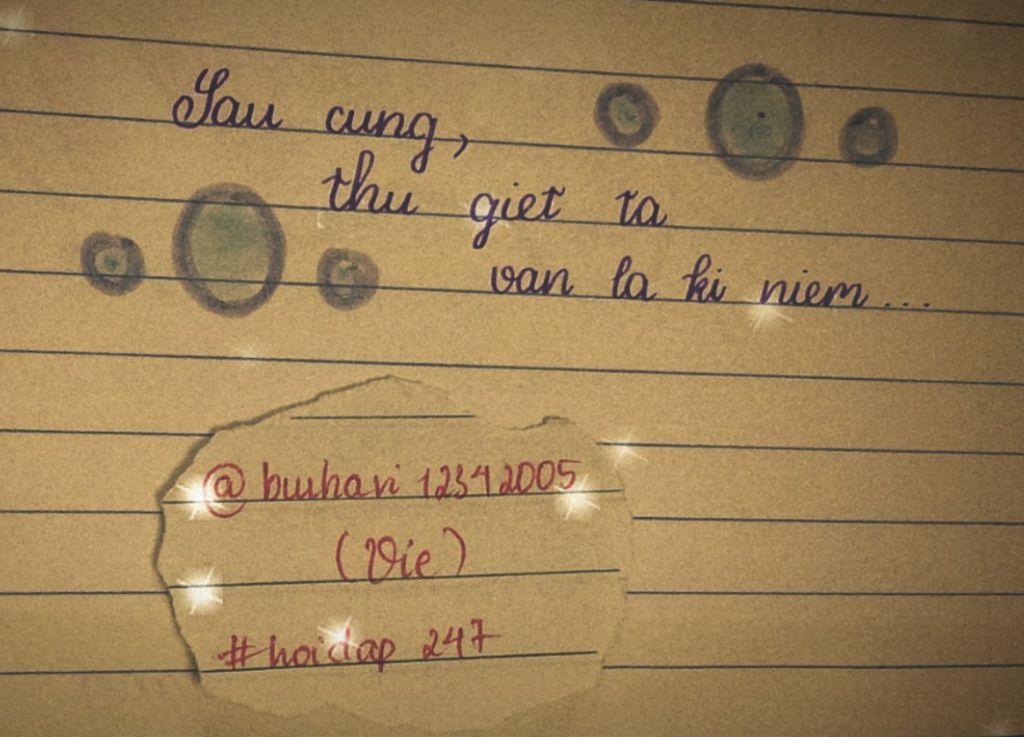 Sau cung,
thu giet ta
van la ki niem...
@ buihavi 12342005
(Vie)
#hoidap 247